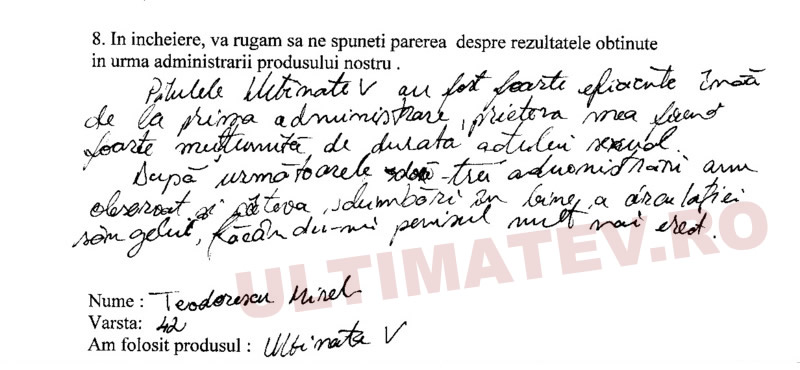 8. In incheiere, va rugam sa ne spuneti parerea despre rezultatele obtinute
in urma administrarii produsului nostru .
Pilulele Ultimate V au fost foarte eficiente încă
de la prima administrare, prietena mea fiind
foarte mulțumită de durata actului sexual.
După următoarele două-trei administrări am
observat și câteva schimbări în bine, a circulației
sângelui, făcându-mi penisul mult mai erect.
ULTIMATEV.RO
Nume : Teodorescu Mirel
Varsta: 42
Am folosit produsul : Ultimate V